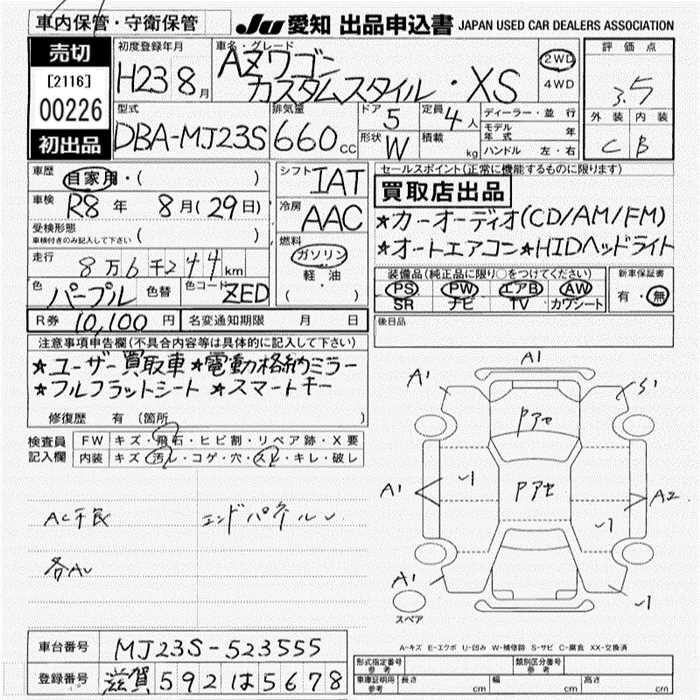 車内保管・守衛保管
JU 愛知 出品申込書 JAPAN USED CAR DEALERS ASSOCIATION
売切
[2116]
00226
初出品
初度登録年月
H23 8月
車名・グレード
AZワゴン
カスタムスタイル・XS
2WD
4WD
評価点
3.5
外装 内装
C B
型式
DBA-MJ23S
排気量
660cc
ドア 5
形状 W
定員 4人
積載 kg
ディーラー・並行
モデル年式 年
ハンドル 左・右
車歴 自家用・( )
車検 R8年 8月(29日)
受検形態
車検付きのみ記入して下さい ( )
走行 8万6千244km
色 パープル 色替 色コード ZED
R券 10,100円 名変通知期限 月 日
シフト IAT
冷房 AAC
燃料
ガソリン
軽・油
( )
セールスポイント(正常に機能するものに限ります)
買取店出品
★カーオーディオ(CD/AM/FM)
★オートエアコン★HIDヘッドライト
装備品(純正品に限り○をつけてください)
PS PW エアB AW
SR ナビ TV カワシート
新車保証書
有・無
後日品
注意事項申告欄(不具合内容等は具体的に記入して下さい)
★ユーザー買取車★電動格納ミラー
★フルフラットシート★スマートキー
修復歴 有(箇所
検査員記入欄
FW キズ・飛石・ヒビ割・リペア跡・X要
内装 キズ・汚レ・コゲ・穴・スレ・キレ・破レ
AC不良 エンドパネルU
各AU
A1
A1 S1
Pアセ
A1 Pアセ A2
A1
スペア
A-キズ E-エクボ U-凹み W-補修跡 S-サビ C-腐食 XX-交換済
車台番号 MJ23S-523555
登録番号 滋賀 592 は 5678
形式指定番号 参考 類別区分番号 参考
車庫証明用 参考 長さ cm 幅 cm 高さ cm